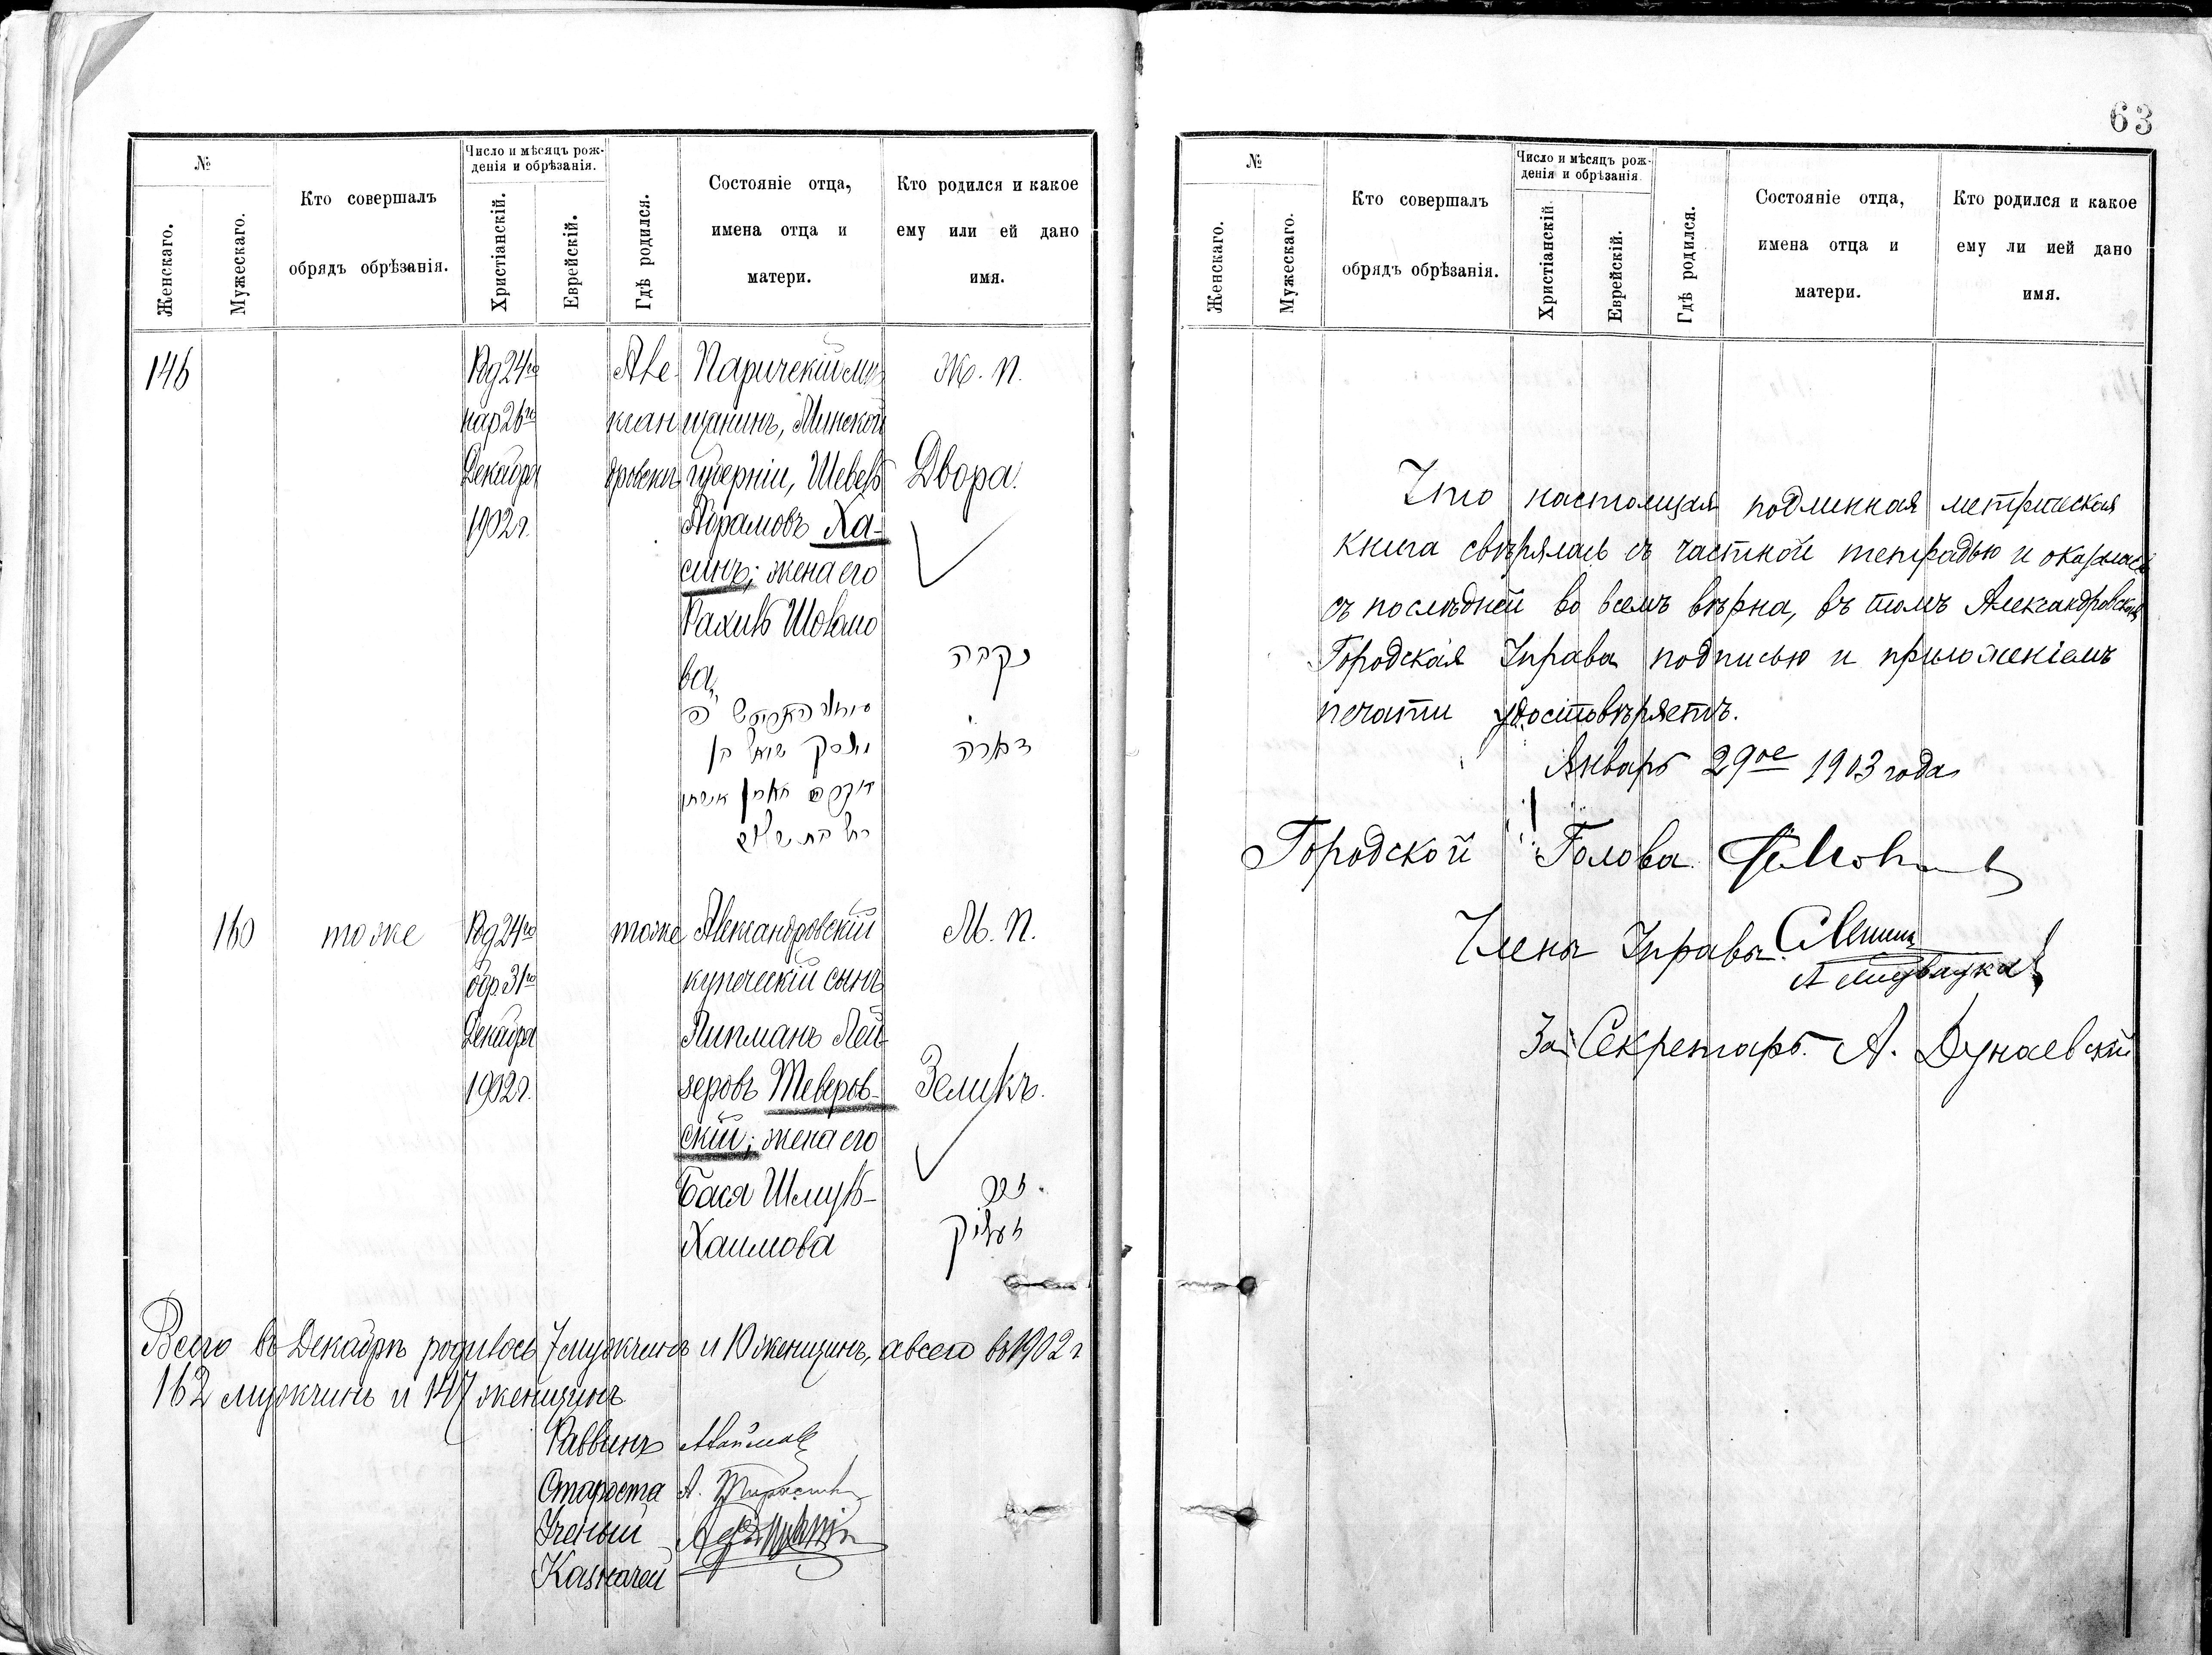 №
Женскаго.
Мужескаго.
Кто совершалъ
обрядъ обрѣзанія.
Число и мѣсяцъ рож-
денія и обрѣзанія.
Христіанскій.
Еврейскій.
Гдѣ родился.
Состояніе отца,
имена отца и
матери.
Кто родился и какое
ему или ей дано
имя.
146
Род 24го
нар 26го
Декабря
1902 г.
Але
ксан
дровскъ
Паричскій мѣ
щанинъ, Минской
губерніи, Шевель
Абрамовъ Ха-
синъ; жена его
Рахиль Шолмо
ва,
Ж. П.
Двора.
נקבה
דבורה
רחל בת
160
тоже
Род 24го
обр 31го
Декабря
1902 г.
тоже
Александровскій
купеческій сынъ
Липманъ Лей-
зеровъ Теверов-
скій; жена его
Бася Шмуль-
Хаимова
М. П.
Зеликъ.
זכר
זעליק
Всего въ Декабрѣ родилось 7 мужчинъ и 10 женщинъ, а всего въ 1902 г
162 мужчинъ и 147 женщинъ
Раввинъ
Староста А.
Ученый
Казначей
63
№
Женскаго.
Мужескаго.
Кто совершалъ
обрядъ обрѣзанія.
Число и мѣсяцъ рож-
денія и обрѣзанія
Христіанскій
Еврейскій.
Гдѣ родился.
Состояніе отца,
имена отца и
матери.
Кто родился и какое
ему ли ией дано
имя.
Что настоящая подлинная метрическая
книга свѣрялась съ частной тетрадью и оказалась
съ послѣдней во всемъ вѣрна, въ томъ Александровская
Городская Управа подписью и приложеніемъ
печати удостовѣряетъ.
Январь 29ое 1903 года
Городской Голова
Члены Управы
За Секретарь А. Дунаевскій